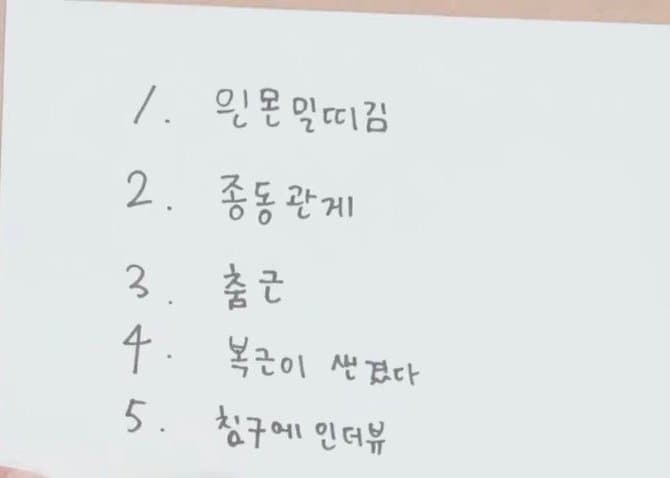 1. 읜몬밀띠김
2. 종동관게
3. 춤근
4. 복근이 샌겼다
5. 침구에 인더뷰